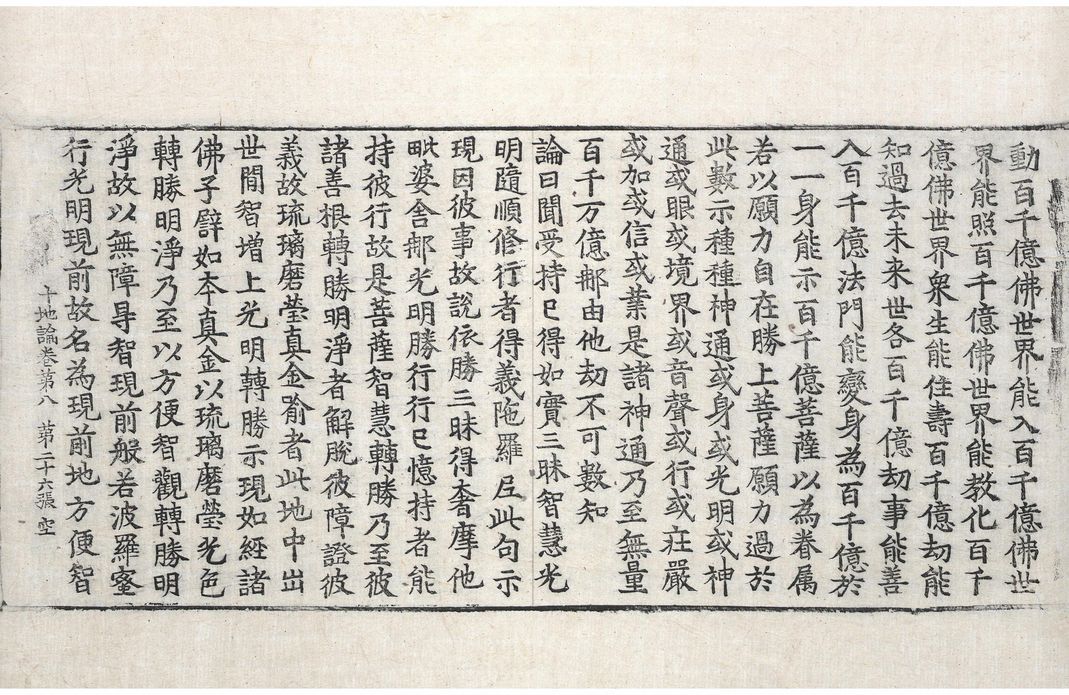 動百千億佛世界能入百千億佛世
界能照百千億佛世界能教化百千
億佛世界衆生能住壽百千億劫能
知過去未来世各百千億劫事能善
入百千億法門能變身為百千億於
一一身能示百千億菩薩以為眷属
若以願力自在勝上菩薩願力過於
此數示種種神通或身或光明或神
通或眼或境界或音聲或行或莊嚴
或加或信或業是諸神通乃至無量
百千万億那由他劫不可數知
論曰聞受持已得如實三昧智慧光
明隨順修行者得義陁羅尼此句示
現因彼事故說依勝三昧得奢摩他
毗婆舍那光明勝行行已憶持者能
持彼行故是菩薩智慧轉勝乃至彼
諸善根轉勝明淨者解脫彼障證彼
義故琉璃磨瑩真金喻者此地中出
世間智增上光明轉勝示現如經諸
佛子譬如本真金以琉璃磨瑩光色
轉勝明淨乃至以方便智觀轉勝明
淨故以無障㝵智現前般若波羅蜜
行光明現前故名為現前地方便智
十地論卷第八 第二十六張 空